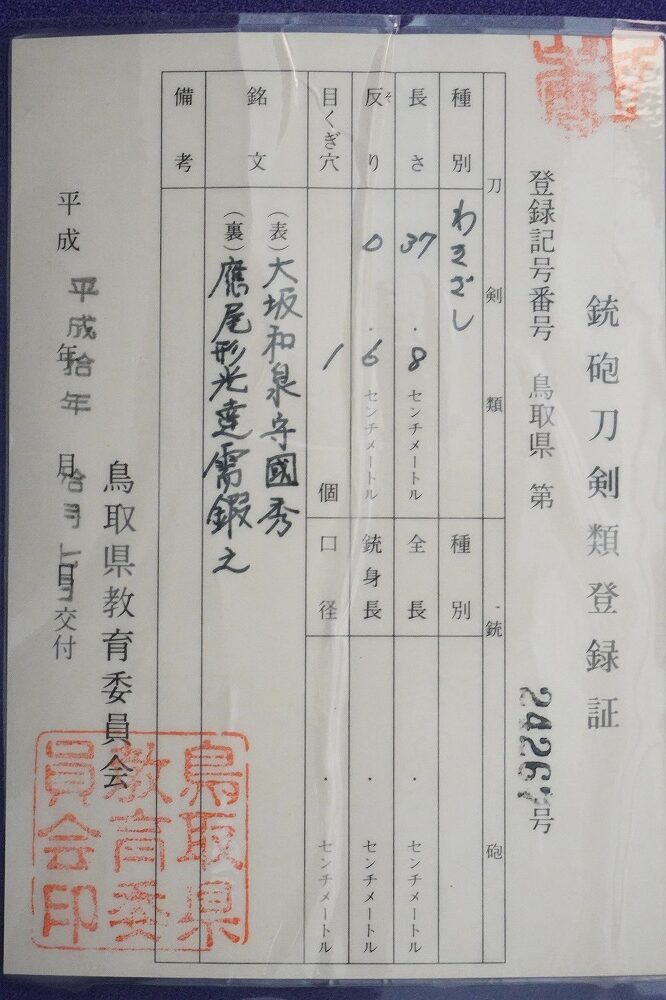 銃砲刀剣類登録証
登録記号番号 鳥取県 第 24267号
刀剣類
種別 わきざし
長さ 37.8センチメートル
反り 0.6センチメートル
そ
目くぎ穴 1個
銘文
(表)大坂和泉守國秀
(裏)應尾形光達需鍛之
備考
銃砲
種別
全長 . センチメートル
銃身長 . センチメートル
口径 . センチメートル
平成 年 月 日交付
平成拾年 拾月
鳥取県教育委員会
鳥取県教育委員会印